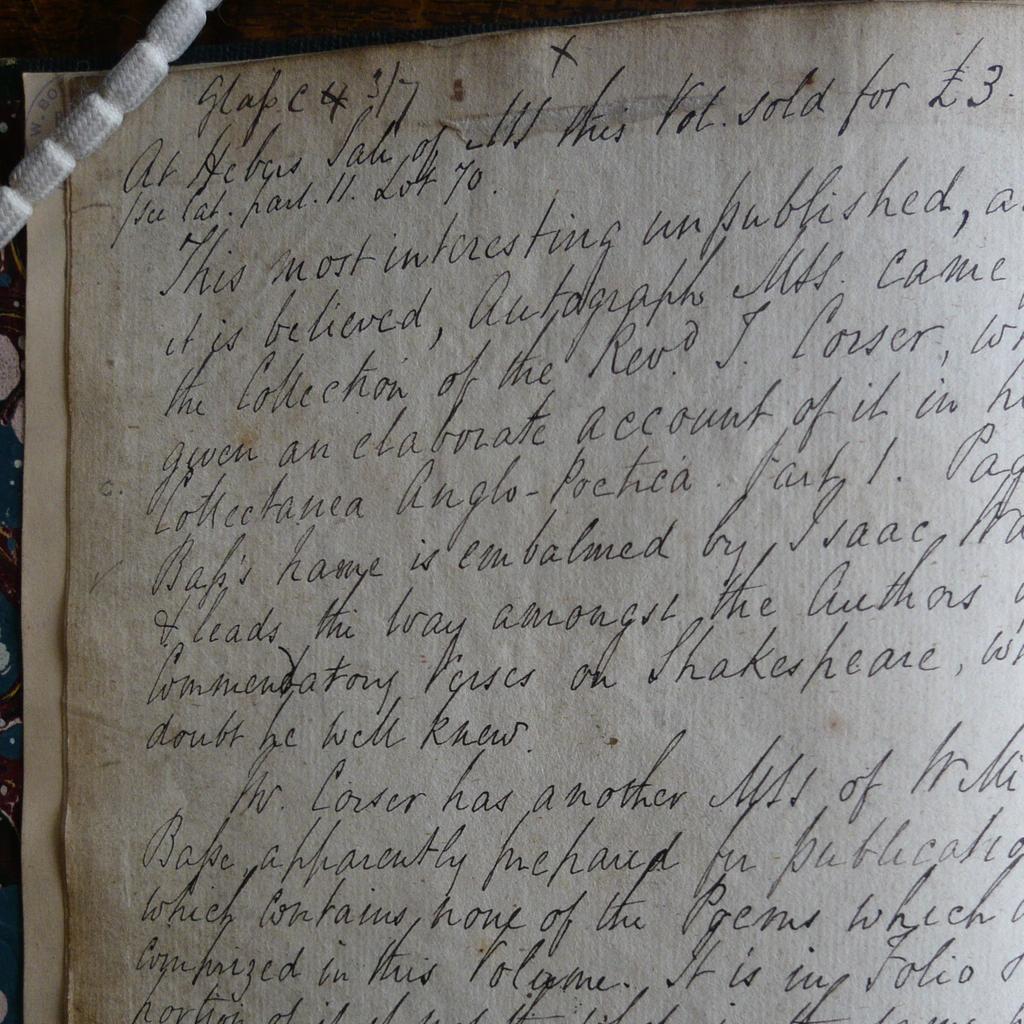 Glass C 4 3/7
At Hebers Sale of MSS this Vol. sold for £3.
/see Cat. part. 11. Lot 70.
This most interesting unpublished, a
it is believed, Autograph MSS. came
the Collection of the Revd. T. Corser, w
given an elaborate account of it in h
Collectanea Anglo-Poetica. Part 1. Pag
Bass's name is embalmed by Isaac Wa
& leads the way amongst the Authors
Commendatory Verses on Shakespeare, w
doubt he well knew.
Mr. Corser has another MSS of Willi
Basse, apparently prepared for publicatio
which contains none of the Poems which
comprized in this Volume. It is in Folio
portion of it